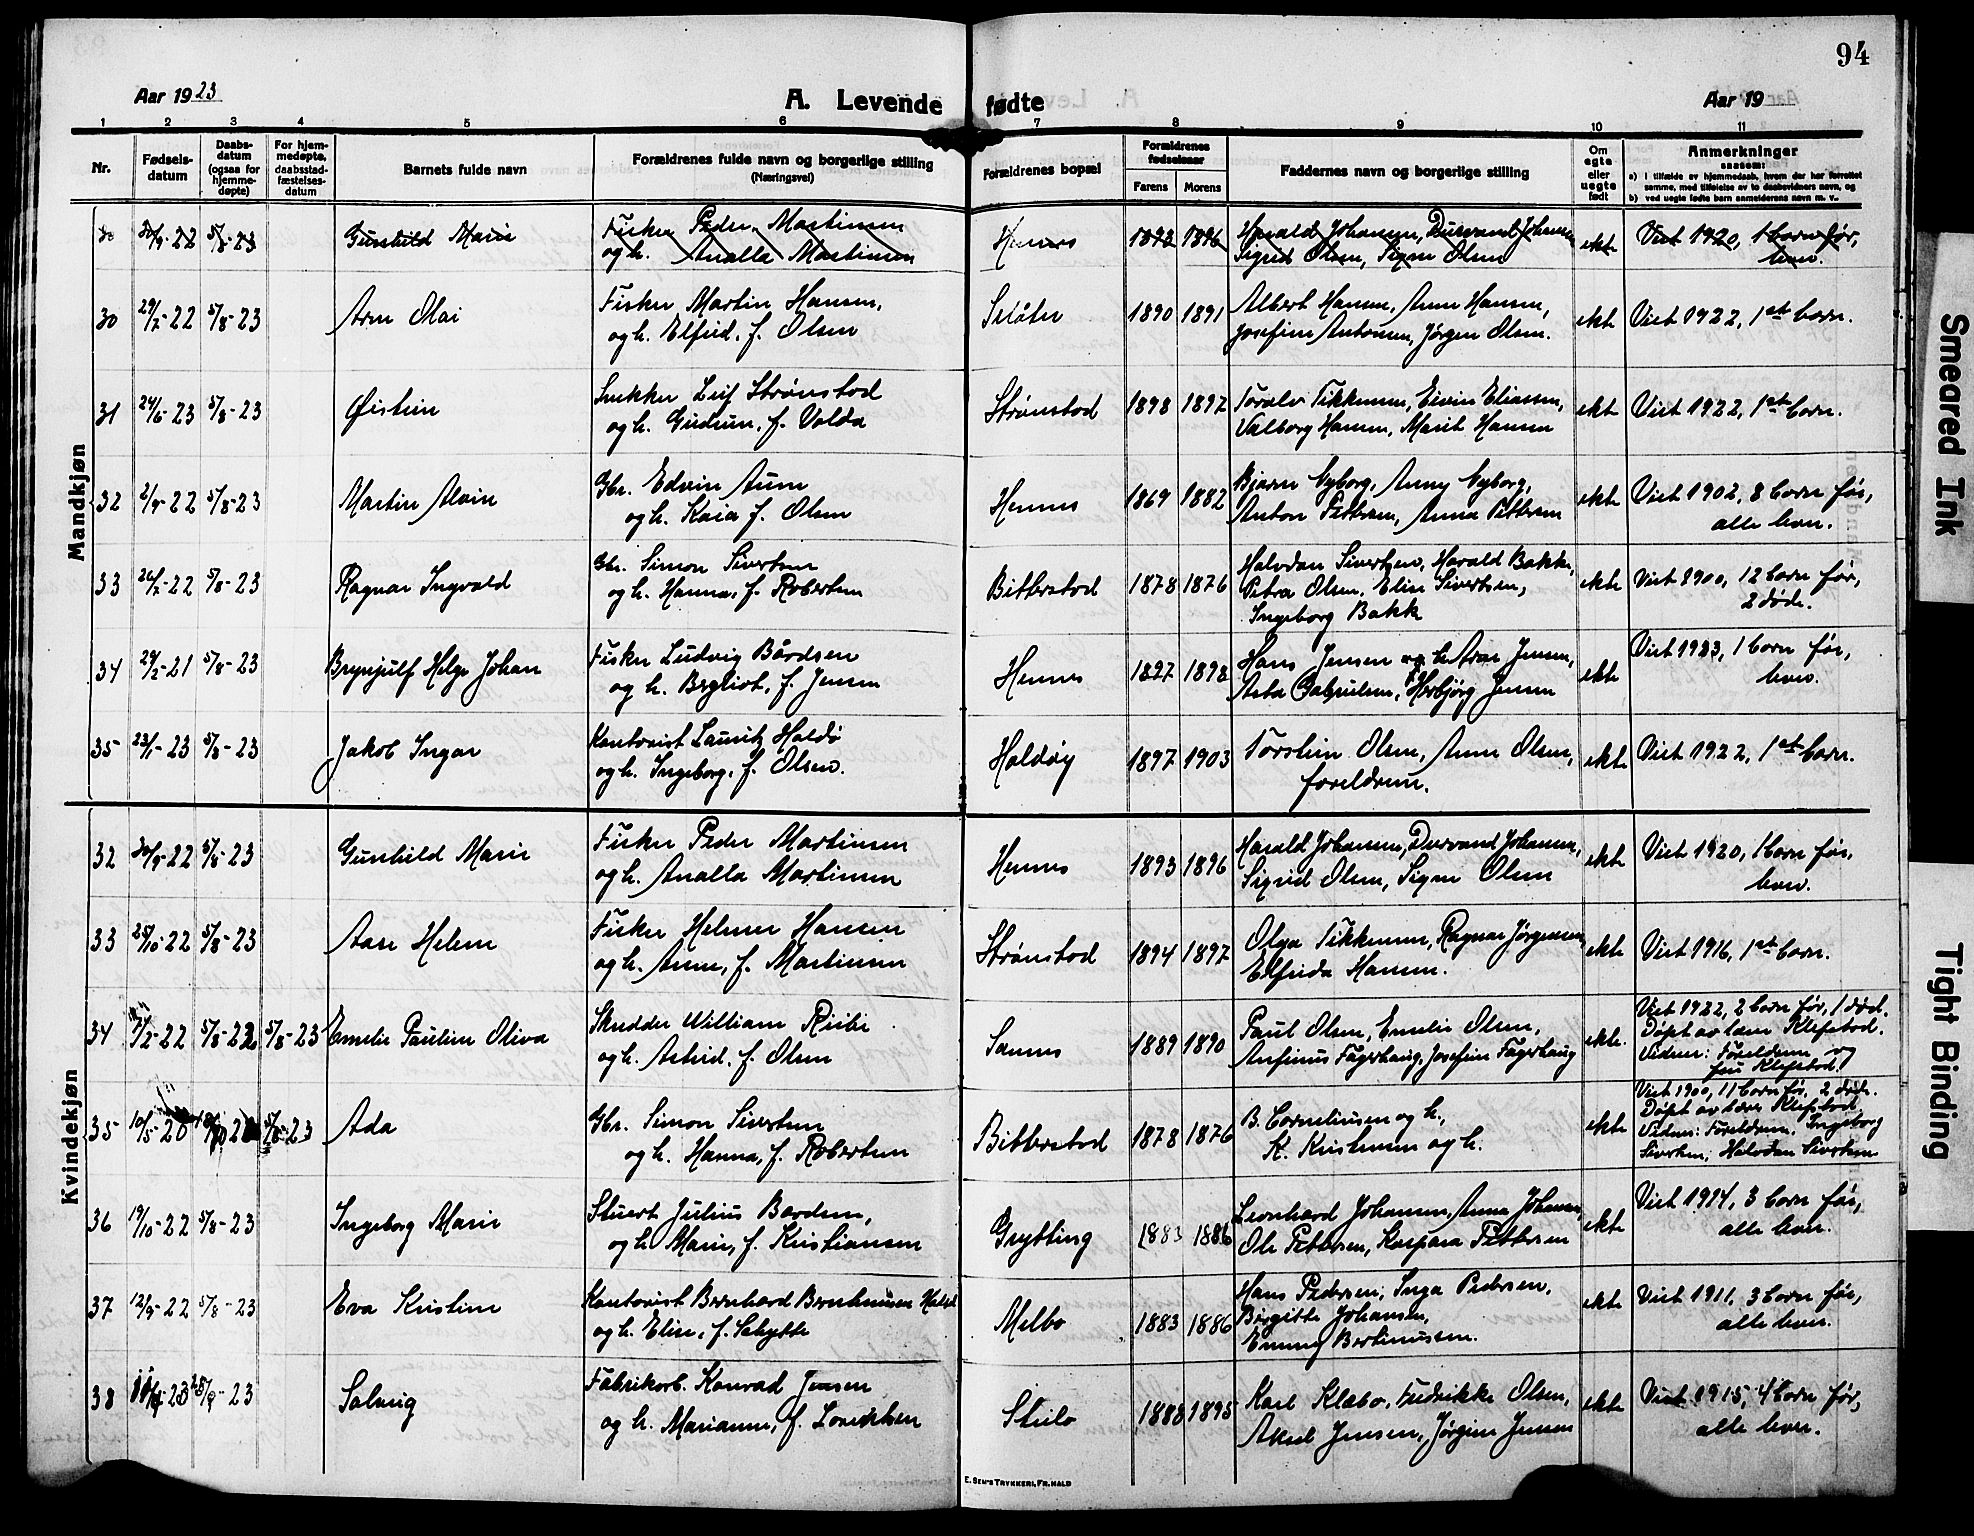 94
Aar 1923
A. Levende fødte
Aar 19
1 2 3 4 5 6 7 8 9 10 11
Nr.
Fødsels-
datum
Daabs-
datum
(ogsaa for
hjemme-
døpte)
For hjem-
medøpte,
daabsstad-
fæstelses-
datum
Barnets fulde navn
Forældrenes fulde navn og borgerlige stilling
(Næringsvei)
Forældrenes bopæl
Forældrenes
fødselsaar
Farens Morens
Faddernes navn og borgerlige stilling
Om
egte
eller
uegte
født
Anmerkninger
saasom:
a) i tilfælde av hjemmedaab, hvem der har forrettet
samme, med tilføielse av to daabsvidners navn, og
b) ved uegte fødte barn anmelderens navn m. v.
Mandkjøn
30/9-22 5/8-23 Gunhild Marie
Fisker Peder Martinsen
og h. Analla Martinsen
Hennes 1893 1896
Harald Johansen, Dusvand Johansen,
Sigrid Olsen, Signe Olsen
ekte
Viet 1920, 1 barn før,
lever.
30 29/7-22 5/8-23 Arne Mai
Fisker Martin Hansen,
og h. Elfrid, f. Olsen
1890 1891
Albert Hansen, Anne Hansen,
Josefine Antonsen, Jørgen Olsen.
ekte Viet 1922, 1st barn.
31 24/6-23 5/8-23 Øistein
Snekker Leif Strønstad
og h. Gudrun, f. Volda
Strønstad 1898 1897
Toralv Tikkanen, Eivin Eliassen,
Valborg Hansen, Marit Hansen
ekte Viet 1922, 1st barn.
32 2/9-22 5/8-23 Martin Alvin
Gbr. Edvin Aune
og h. Kaia f. Olsen
Hennes 1869 1882
Bjarne Nyborg, Anny Nyborg,
Anton Pettersen, Anna Pettersen
ekte Viet 1902, 8 barn før,
alle lever.
33 26/7-22 5/8-23 Ragnar Ingvald
Gbr. Simon Sivertsen
og h. Hanna, f. Robertsen
Bitterstad 1878 1876
Halvdan Sivertsen, Harald Bakke,
Petra Olsen, Elise Sivertsen,
Ingeborg Bakk
ekte Viet 1900, 12 barn før,
2 døde.
34 29/2-21 5/8-23 Brynjulf Helge Johan
Fisker Ludvig Bårdsen
og h. Bergliot, f. Jensen
Hennes 1897 1898
Hans Jensen og h. Aase Jensen,
Asta Gabrielsen, Herbjørg Jensen
ekte Viet 1923, 1 barn før,
lever.
35 23/1-23 5/8-23 Jakob Ingar
Kontorist Lauritz Haldø
og h. Ingeborg, f. Olsen.
Haldøy 1897 1903
Torstein Olsen, Anne Olsen,
foreldrene.
ekte Viet 1922, 1st barn.
Kvindekjøn
32 30/9-22 5/8-23 Gunhild Marie
Fisker Peder Martinsen
og h. Analla Martinsen
Hennes 1893 1896
Harald Johansen, Dusvand Johansen,
Sigrid Olsen, Signe Olsen
ekte Viet 1920, 1 barn før,
lever.
33 25/10-22 5/8-23 Aase Helene
Fisker Helmer Hansen
og h. Anne, f. Martinsen
Strønstad 1894 1897
Olga Tikkanen, Ragnar Jørgensen
Elfrida Hansen.
ekte Viet 1916, 1st barn.
34 5/8-22 5/8-23 Emelie Pauline Oliva
Skredder William Riibe
og h. Astrid, f. Olsen
Sannes 1889 1890
Paul Olsen, Emelie Olsen,
Anfinus Fagerhaug, Josefine Fagerhaug
ekte.
Viet 1922, 2 barn før, 1 død.
Døpt av lærer Klefstad.
Vidner: Foreldrene og
fru Klefstad.
35 10/5-20 5/8-23 Ada
Gbr. Simon Sivertsen
og h. Hanna, f. Robertsen
Bitterstad 1878 1876
B. Corneliusen og h.,
K. Kristensen og h.
ekte
Viet 1900, 11 barn før, 2 døde.
Døpt av lærer Klefstad
Vidner: Foreldrene, Ingeborg
Sivertsen, Halvdan Sivertsen
36 19/10-22 5/8-23 Ingeborg Marie
Stuert Julius Bårdsen,
og h. Marie, f. Kristiansen
Grytting 1883 1886
Leonhard Johansen, Anna Johansen,
Ole Pettersen, Kaspara Pettersen
ekte Viet 1914, 3 barn før,
alle lever.
37 12/9-22 5/8-23 Eva Kristine
Kontorist Bernhard Benthinusen
og h. Elise, f. Schytte
Melbo 1883 1886
Hans Pedersen, Inga Pedersen,
Birgitte Johansen,
Emmy Bertinussen.
ekte Viet 1911, 3 barn før,
alle lever.
38 Solveig
Fabrikarb. Konrad Jensen
og h. Marianne, f. Lorentsen
Steilo 1888 1895
Karl Klæbo, Fredrikke Olsen,
Aksel Jensen, Jørgine Jensen
ekte Viet 1915, 4 barn før,
alle lever.
E. Sem's Trykkeri, Fr.hald
Smeared Ink
Tight Binding